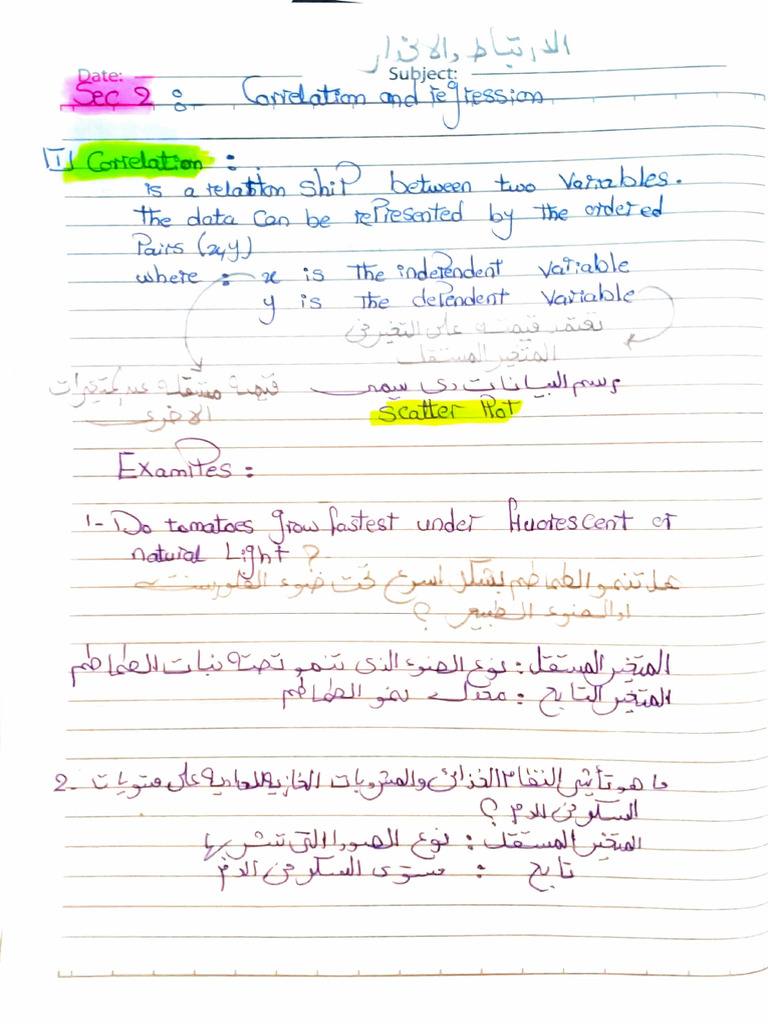 الارتباط والانحدار
Date: Subject:
Sec 2 : Correlation and regression
1) Correlation :
is a relation ship between two variables.
The data can be represented by the ordered
Pairs (x,y)
where : x is the independent variable
y is the dependent variable
تعتمد قيمته على التغير في
المتغير المستقل
قيمة مستقلة عن المتغيرات
الاخرى
رسم البيانات دى يسمى
Scatter Plot
Examples :
1- Do tomatoes grow fastest under fluorescent or
natural Light ?
هل تنمو الطماطم بشكل اسرع تحت ضوء الفلورسنت
او الضوء الطبيعي ؟
المتغير المستقل : نوع الضوء الذى تنمو تحته نبات الطماطم
المتغير التابع : معدل نمو الطماطم
2- ما هو تأثير النظام الغذائى والمشروبات الغازية العادية على مستويات
السكر في الدم ؟
المتغير المستقل : نوع الصودا التى تشربها
تابع : مستوى السكر في الدم